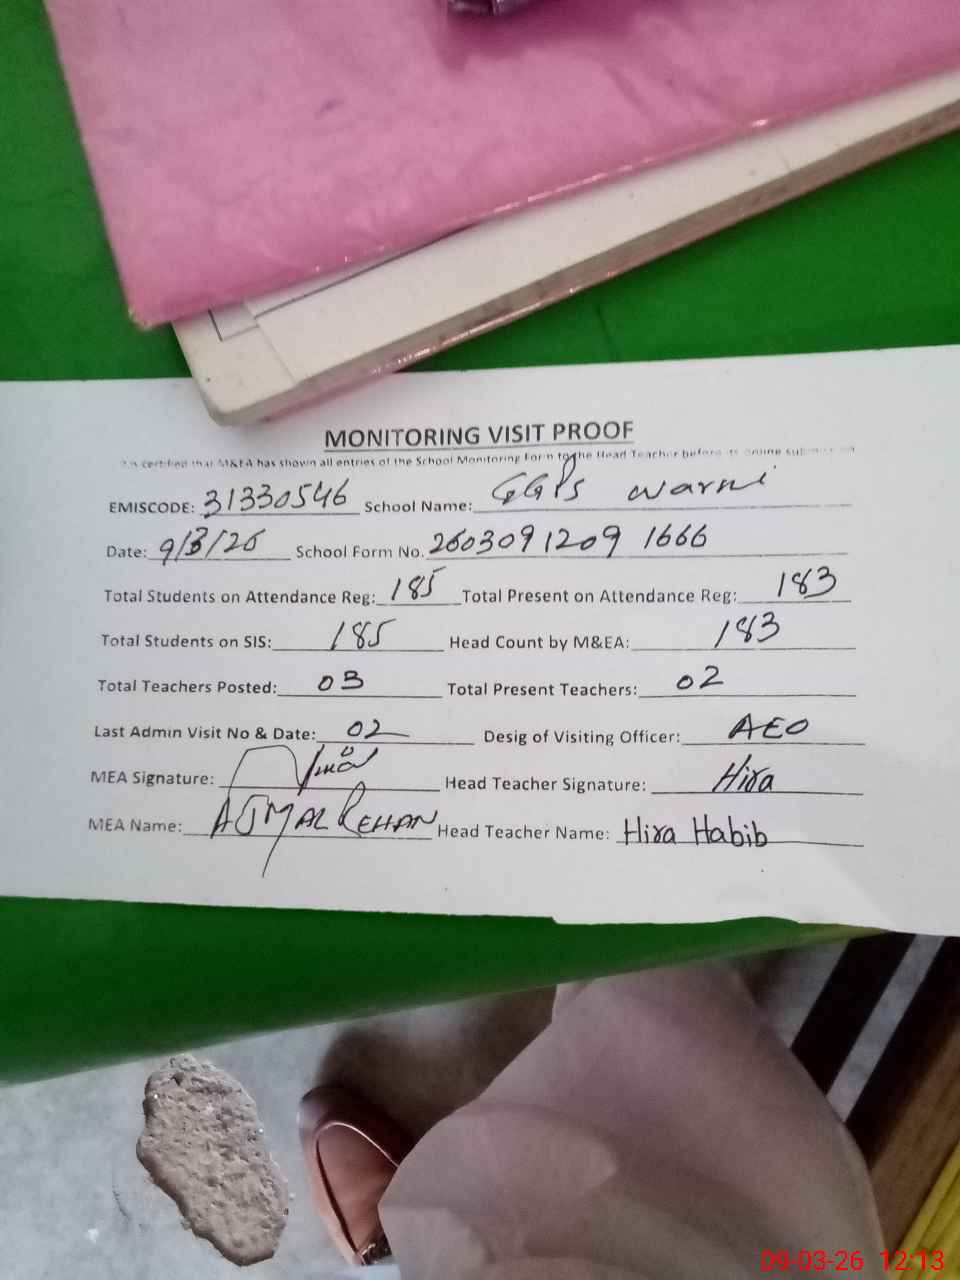 MONITORING VISIT PROOF
It is certified that M&EA has shown all entries of the School Monitoring Form to the Head Teacher before its online submission
EMISCODE: 31330546 School Name: GGPS warni
Date: 9/3/26 School Form No. 2603091209 1666
Total Students on Attendance Reg: 185 Total Present on Attendance Reg: 183
Total Students on SIS: 185 Head Count by M&EA: 183
Total Teachers Posted: 03 Total Present Teachers: 02
Last Admin Visit No & Date: 02 Desig of Visiting Officer: AEO
MEA Signature: Head Teacher Signature: Hira
MEA Name: AJMAL REHAN Head Teacher Name: Hira Habib
09-03-26 12:13